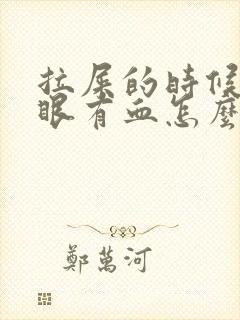 拉屎的時候
眼有血怎麼
鄭萬河